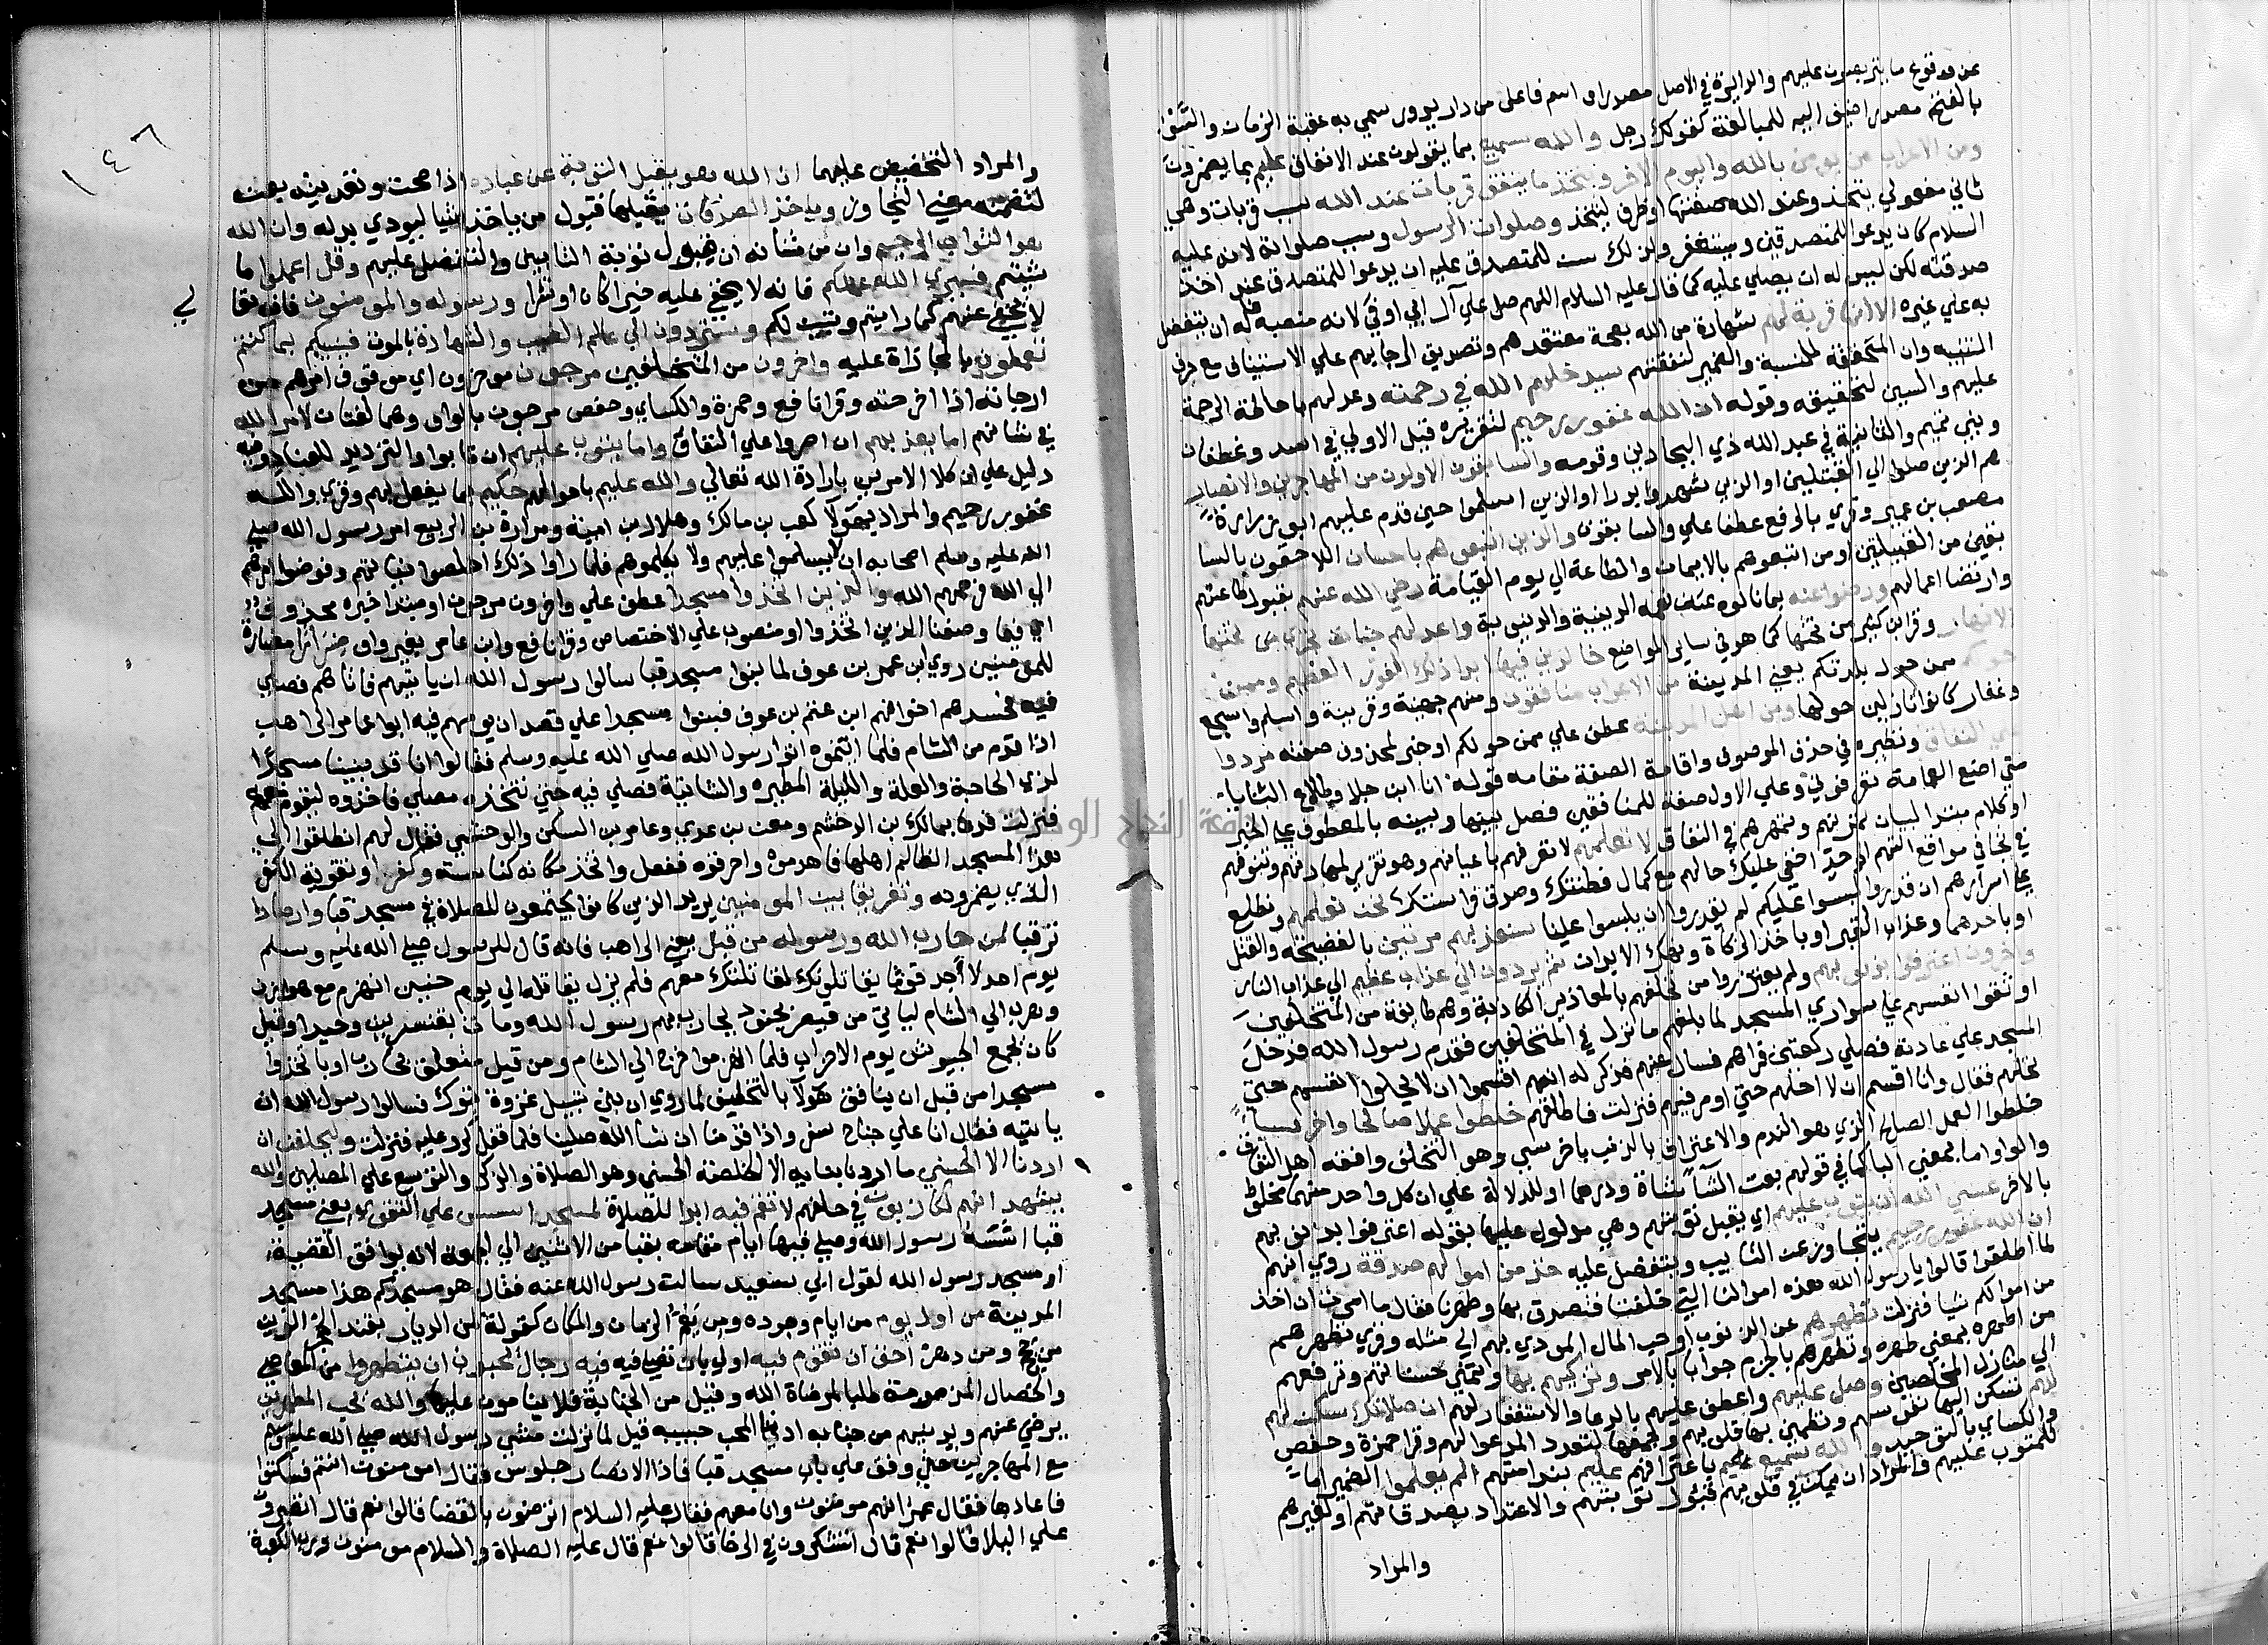 عن وقوع ما يتربصون عليهم والدايرة في الاصل مصدر او اسم فاعل من دار يدور سمي به عقبة الزمان والسَّوْ
بالفتح مصدر اضيف اليه للمبالغة كقولك رجل والله سميع بما يقولون عند الانفاق عليم بما يضمرون
ومن الاعراب من يومن بالله واليوم الاخر ويتخذ ما ينفق قربات عند الله سبب قربات وهي
ثاني مفعولي يتخذ وعند الله صفتها او ظرف ليتخذ وصلوات الرسول وسبب صلواته لانه عليه
السلام كان يدعوا للمتصدقين ويستغفر ولذلك سن للمتصدق عليه ان يدعوا للمتصدق عند اخذ
صدقته لكن ليس له ان يصلي عليه كما قال عليه السلام اللهم صل علي آل ابي اوفي لانه منصبه فله ان يتفضل
به علي غيره الا انها قربة لهم شهادة من الله بصحة معتقدهم وتصديق لرجايهم علي الاستيناف مع حرف
التنبيه وان المحققة للنسبة والضمير لنفقتهم سيدخلهم الله في رحمته وعد لهم باحاطة الرحمة
عليهم والسين لتحقيقه وقوله ان الله غفور رحيم لتقريره قيل الاولي في اسد وغطفان
وبني تميم والثانية في عبد الله ذي البجادين وقومه والسابقون الاولون من المهاجرين والانصار
هم الذين صلوا الي القبلتين او الذين شهدوا بدرا او الذين اسلموا حين قدم عليهم ابو زرارة
مصعب بن عمير وقري بالرفع عطفا علي والسابقون والذين اتبعوهم باحسان اللاحقون بالسا
بقين من القبيلتين او من اتبعوهم بالايمان والطاعة الي يوم القيامة رضي الله عنهم بقبول طاعتهم
وارتضا اعمالهم ورضوا عنه بما نالوه من نعمه الدينية والدنيوية واعد لهم جنات تجري من تحتها
الانهار وقرا ابن كثير من تحتها كما هو في ساير المواضع خالدين فيها ابدا ذلك الفوز العظيم وممن
حولكم ممن حول بلدتكم يعني المدينة من الاعراب منافقون ومنهم جهينة ومزينة واسلم واشجع
وغفار كانوا نازلين حولها ومن اهل المدينة عطف علي ممن حولكم او خبر لمحذوف صفته مردوا
علي النفاق ونظيره في حذف الموصوف واقامة الصفة مقامه قوله انا ابن جلا وطلاع الثنايا
متي اضع العمامة تعرفوني وعلي الاول صفة للمنافقين فصل بينها وبينه بالمعطوف علي الخبر
او كلام مبتدا لبيان تمرنهم وتمهرهم في النفاق لا تعلمهم لا تعرفهم باعيانهم وهو تقرير لمهارتهم وتنوقهم
في تحامي مواقع التهم الي حد اخفي عليك حالهم مع كمال فطنتك وصدق فراستك نحن نعلمهم ونطلع
علي اسرارهم ان قدروا ان يلبسوا عليكم لم يقدروا ان يلبسوا علينا سنعذبهم مرتين بالفضيحة والقتل
او باحدهما وعذاب القبر او باخذ الزكاة ونهك الابدان ثم يردون الي عذاب عظيم الي عذاب النار
واخرون اعترفوا بذنوبهم ولم يعتذروا من تخلفهم بالمعاذير الكاذبة وهم طايفة من المتخلفين
اوثقوا انفسهم علي سواري المسجد لما بلغهم ما نزل في المتخلفين فقدم رسول الله فدخل
المسجد علي عادته فصلي ركعتين فراهم فسال عنهم فذكر له انهم اقسموا ان لا يحلوا انفسهم حتي
تحلهم فقال وانا اقسم ان لا احلهم حتي اومر فيهم فنزلت فاطلقهم خلطوا عملا صالحا واخر سيا
خلطوا العمل الصالح الذي هو الندم والاعتراف بالذنب باخر سيي وهو التخلف وموافقة اهل النفاق
والواو اما بمعني الباء كما في قولهم بعت الشاء شاة ودرهما او للدلالة علي ان كل واحد منهما مخلوط
بالاخر عسي الله ان يتوب عليهم اي يقبل توبتهم وهي مدلول عليها بقوله اعترفوا بذنوبهم
ان الله غفور رحيم يتجاوز عن التايب ويتفضل عليه خذ من اموالهم صدقة روي انهم
لما اطلقوا قالوا يا رسول الله هذه اموالنا التي خلفتنا فتصدق بها وطهرنا فقال ما امرت ان اخذ
من اموالكم شيا فنزلت تطهرهم عن الذنوب او حب المال المودي بهم الي مثله وقري تطهرهم
من اطهره بمعني طهره وتطهرهم بالجزم جوابا بالامر وتزكيهم بها وتنمي حسناتهم وترفعهم
الي منازل المخلصين وصل عليهم واعطف عليهم بالدعا والاستغفار لهم ان صلاتك سكن لهم
لهم تسكن اليها نفوسهم وتطمين بها قلوبهم وجمعها لتعدد المدعو لهم وقرا حمزة وحفص
والكساي بالتوحيد والله سميع عليم باعترافهم عليم بندامتهم الم يعلموا الضمير اما
للمتوب عليهم والمراد ان يمكن في قلوبهم قبول توبتهم والاعتداد بصدقاتهم او لغيرهم
والمراد
١٤٦
والمراد التخضيض عليهما ان الله هو يقبل التوبة عن عباده اذا صحت وتعديته بعن
لتضمنه معني التجاوز وياخذ الصدقات يقبلها قبول من ياخذ شيا ليودي بدله وان الله
هو التواب الرحيم وان من شانه ان قبول توبة التايبين والتفضل عليهم وقل اعملوا ما
شيتم فسيري الله عملكم فانه لا يخفي عليه خيرا كان او شرا ورسوله والمومنون فانه تعا
لي
لا يخفي عنهم كما رايتم وتبين لكم وستردون الي عالم الغيب والشهادة بالموت فينبيكم بما كنتم
تعملون بالمجازاة عليه واخرون من المتخلفين مرجون موخرون اي موقوف امرهم من
ارجاته اذا اخرحته وقرا نافع وحمزة والكساي وحفص مرجون بالواو وهما لغتان لامر الله
في شانهم اما يعذبهم ان اصروا علي النفاق واما يتوب عليهم ان تابوا والترديد للعباد وفيه
دليل علي ان كلا الامرين بارادة الله تعالي والله عليم باحوالهم حكيم بما يفعل بهم وقري والله
غفور رحيم والمراد بهولا كعب بن مالك وهلال بن امية ومرارة بن الربيع امر رسول الله صلي
الله عليه وسلم اصحابه ان لا يسلموا عليهم ولا يكلموهم فلما راوا ذلك اخلصوا نياتهم وفوضوا امرهم
الي الله فرحمهم الله والذين اتخذوا مسجدا عطف علي واخرون مرجون او مبتدا خبره محذوف
اي فيما وصفنا الذين اتخذوا او منصوب علي الاختصاص وقرا نافع وابن عامر بغير واو ضرارا مضارة
للمومنين روي ان بني عمرو بن عوف لما بنوا مسجد قبا سالوا رسول الله ان ياتيهم فاتاهم فصلي
فيه فحسدهم اخوانهم ابن غنم بن عوف فبنوا مسجدا علي قصد ان يومهم فيه ابو عامر الراهب
اذا قدم من الشام فلما اتموه اتوا رسول الله صلي الله عليه وسلم فقالوا انا قد بنينا مسجدا
لذي الحاجة والعلة والليلة المطيرة والشاتية فصلي فيه حتي نتخذه مصلي فاخذ ثوبه ليقوم معهم
فنزلت فدعا بمالك بن الدخشم ومعن بن عدي وعامر بن السكن والوحشي فقال لهم انطلقوا الي
هذا المسجد الظالم اهلها فاهدموه واحرقوه ففعل واتخذ مكانه كناسة وكفرا وتقوية الكفر
الذي يضمرونه وتفريقا بين المومنين يريد الذين كانوا يجتمعون للصلاة في مسجد قبا وارصادا
ترقبا لمن حارب الله ورسوله من قبل يعني الراهب فانه قال للرسول صلي الله عليه وسلم
يوم احد لا اجد قوما يقاتلونك الا قاتلتك معهم فلم يزل يقاتله الي يوم حنين انهزم مع هوازن
وهرب الي الشام لياتي من قيصر بجنود يحارب بهم رسول الله ومات بقنسرين وحيدا وقيل
كان يجمع الجيوش يوم الاحزاب فلما انهزموا خرج الي الشام ومن قبل متعلق بحارب او باتخذوا
مسجدا من قبل ان ينافق هولا بالتخلف لما روي انه بني قبيل غزوة تبوك فسالوا رسول الله ان
ياتيه فقال انا علي جناح سفر واذا قدمنا ان شا الله صلينا فلما قفل كرر عليه فنزلت وليحلفن ان
اردنا الا الحسني ما اردنا ببنايه الا الخصلة الحسني وهو الصلاة والذكر والتوسع علي المصلين والله
يشهد انهم لكاذبون في حلفهم لا تقم فيه ابدا للصلاة لمسجد اسس علي التقوي يعني مسجد
قبا اسسه رسول الله وصلي فيها ايام مقامه بقبا من الاثنين الي الجمعة لانه يوافق القصة
او مسجد رسول الله لقول ابي سعيد سالت رسول الله عنه فقال هو مسجدكم هذا مسجد
المدينة من اول يوم من ايام وجوده ومن يعم الزمان والمكان كقوله لمن الديار بقنة الحجر اقوين
من حجج ومن دهر احق ان تقوم فيه اولي بان تصلي فيه فيه رجال يحبون ان يتطهروا من المعاصي
والخصال المذمومة طلبا لمرضاة الله وقيل من الجنابة فلا ينامون عليها والله يحب المطهرين
يرضي عنهم ويدنيهم من جنابه ادنا المحب حبيبه قيل لما نزلت مشي رسول الله صلي الله عليه وسلم
مع المهاجرين حتي وقف علي باب مسجد قبا فاذا الانصار جلوس فقال امومنون انتم فسكتوا
فاعادها فقال عمر انهم مومنون وانا معهم فقال عليه السلام اترضون بالقضا قالوا نعم قال اتصبرون
علي البلا قالوا نعم قال اتشكرون في الرخا قالوا نعم قال عليه الصلاة والسلام مومنون ورب الكعبة